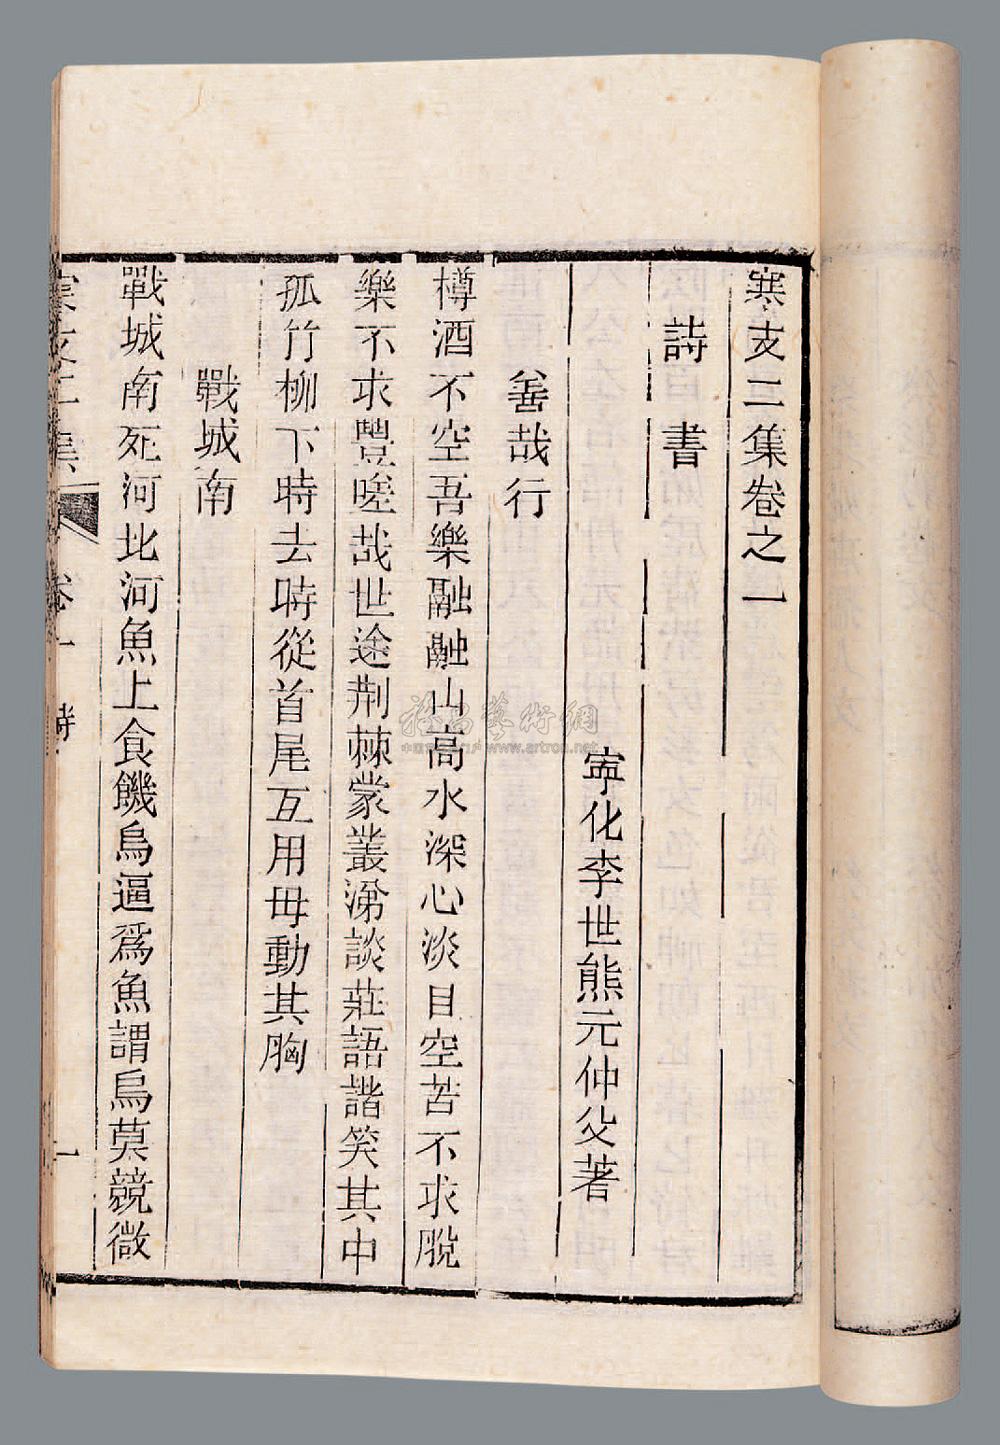 寒支二集卷之一
詩書
寧化李世熊元仲父著
善哉行
樽酒不空吾樂融融山高水深心淡目空苦不求脫
樂不求豐嗟哉世途荆棘蒙叢湯談莊語諧笑其中
孤竹柳下時去時從首尾互用毋動其胸
戰城南
戰城南死河北河魚上食饑烏逼爲魚謂烏莫競微
寒支二集
卷一
詩
一
雅昌藝術網
www.artron.net